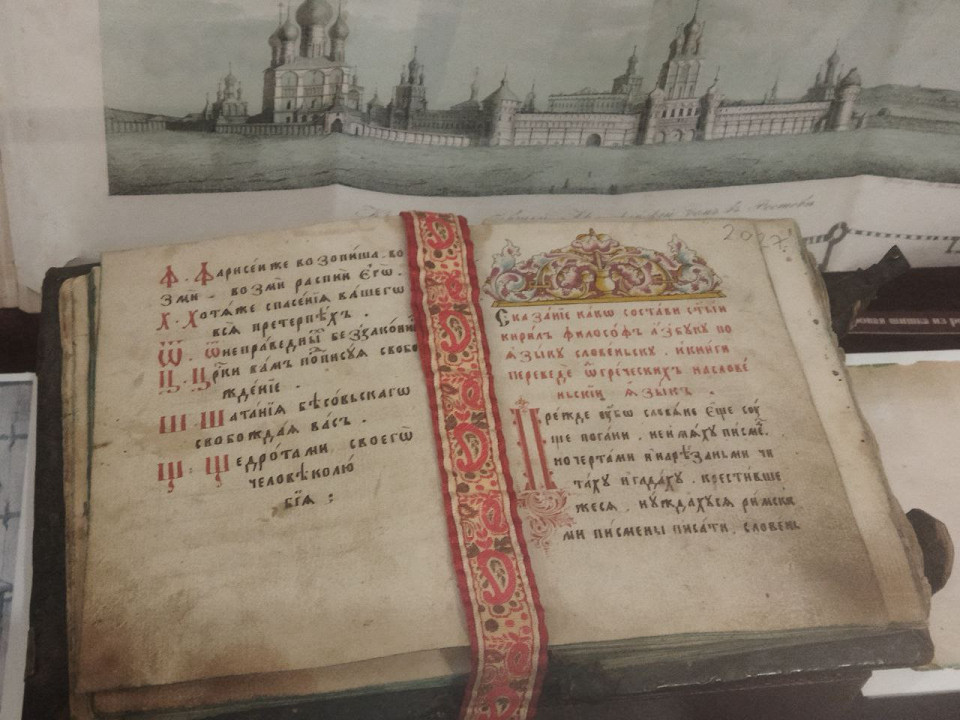 Ф · Фарисеи же возопиша · во
зми – возми распни Єгѡ̀ .
Х · Хотѧ́ же спасенїѧ ва́шегѡ
всѧ̀ претерпѣ́хъ .
Ѿ · Ѿ неправедны̑ беззакони
Ц · Цр҃ки ва́мъ по́писуѧ свобо
жде́нїе .
Ш · Шата́нїѧ бѣсо́вьскагѡ
свобожда́ѧ ва́съ .
Щ · Щедро́тами, своегѡ̀
человѣколю́
бїѧ :
2027.
Сказанїе ка́кѡ соста́ви ст҃ы́й
кири́лъ филосо́фъ а́збуку по
ѧзы́ку слове́ньску . и кни́ги
переведѐ ѿ гре́ческихъ на слове́
ньскїй ѧзы́къ .
Пре́жде ᲂу҆́бѡ слова́не є҆щѐ су́
ще пога́ни . не и҆мѧ́ху писме́,
но черта́ми и҆ нарѣ́заньми чи
та́ху и҆ гада́ху . крести́вше
жесѧ , и нужда́хусѧ ри́мски
ми пи́смены писа́ти, слове́нь